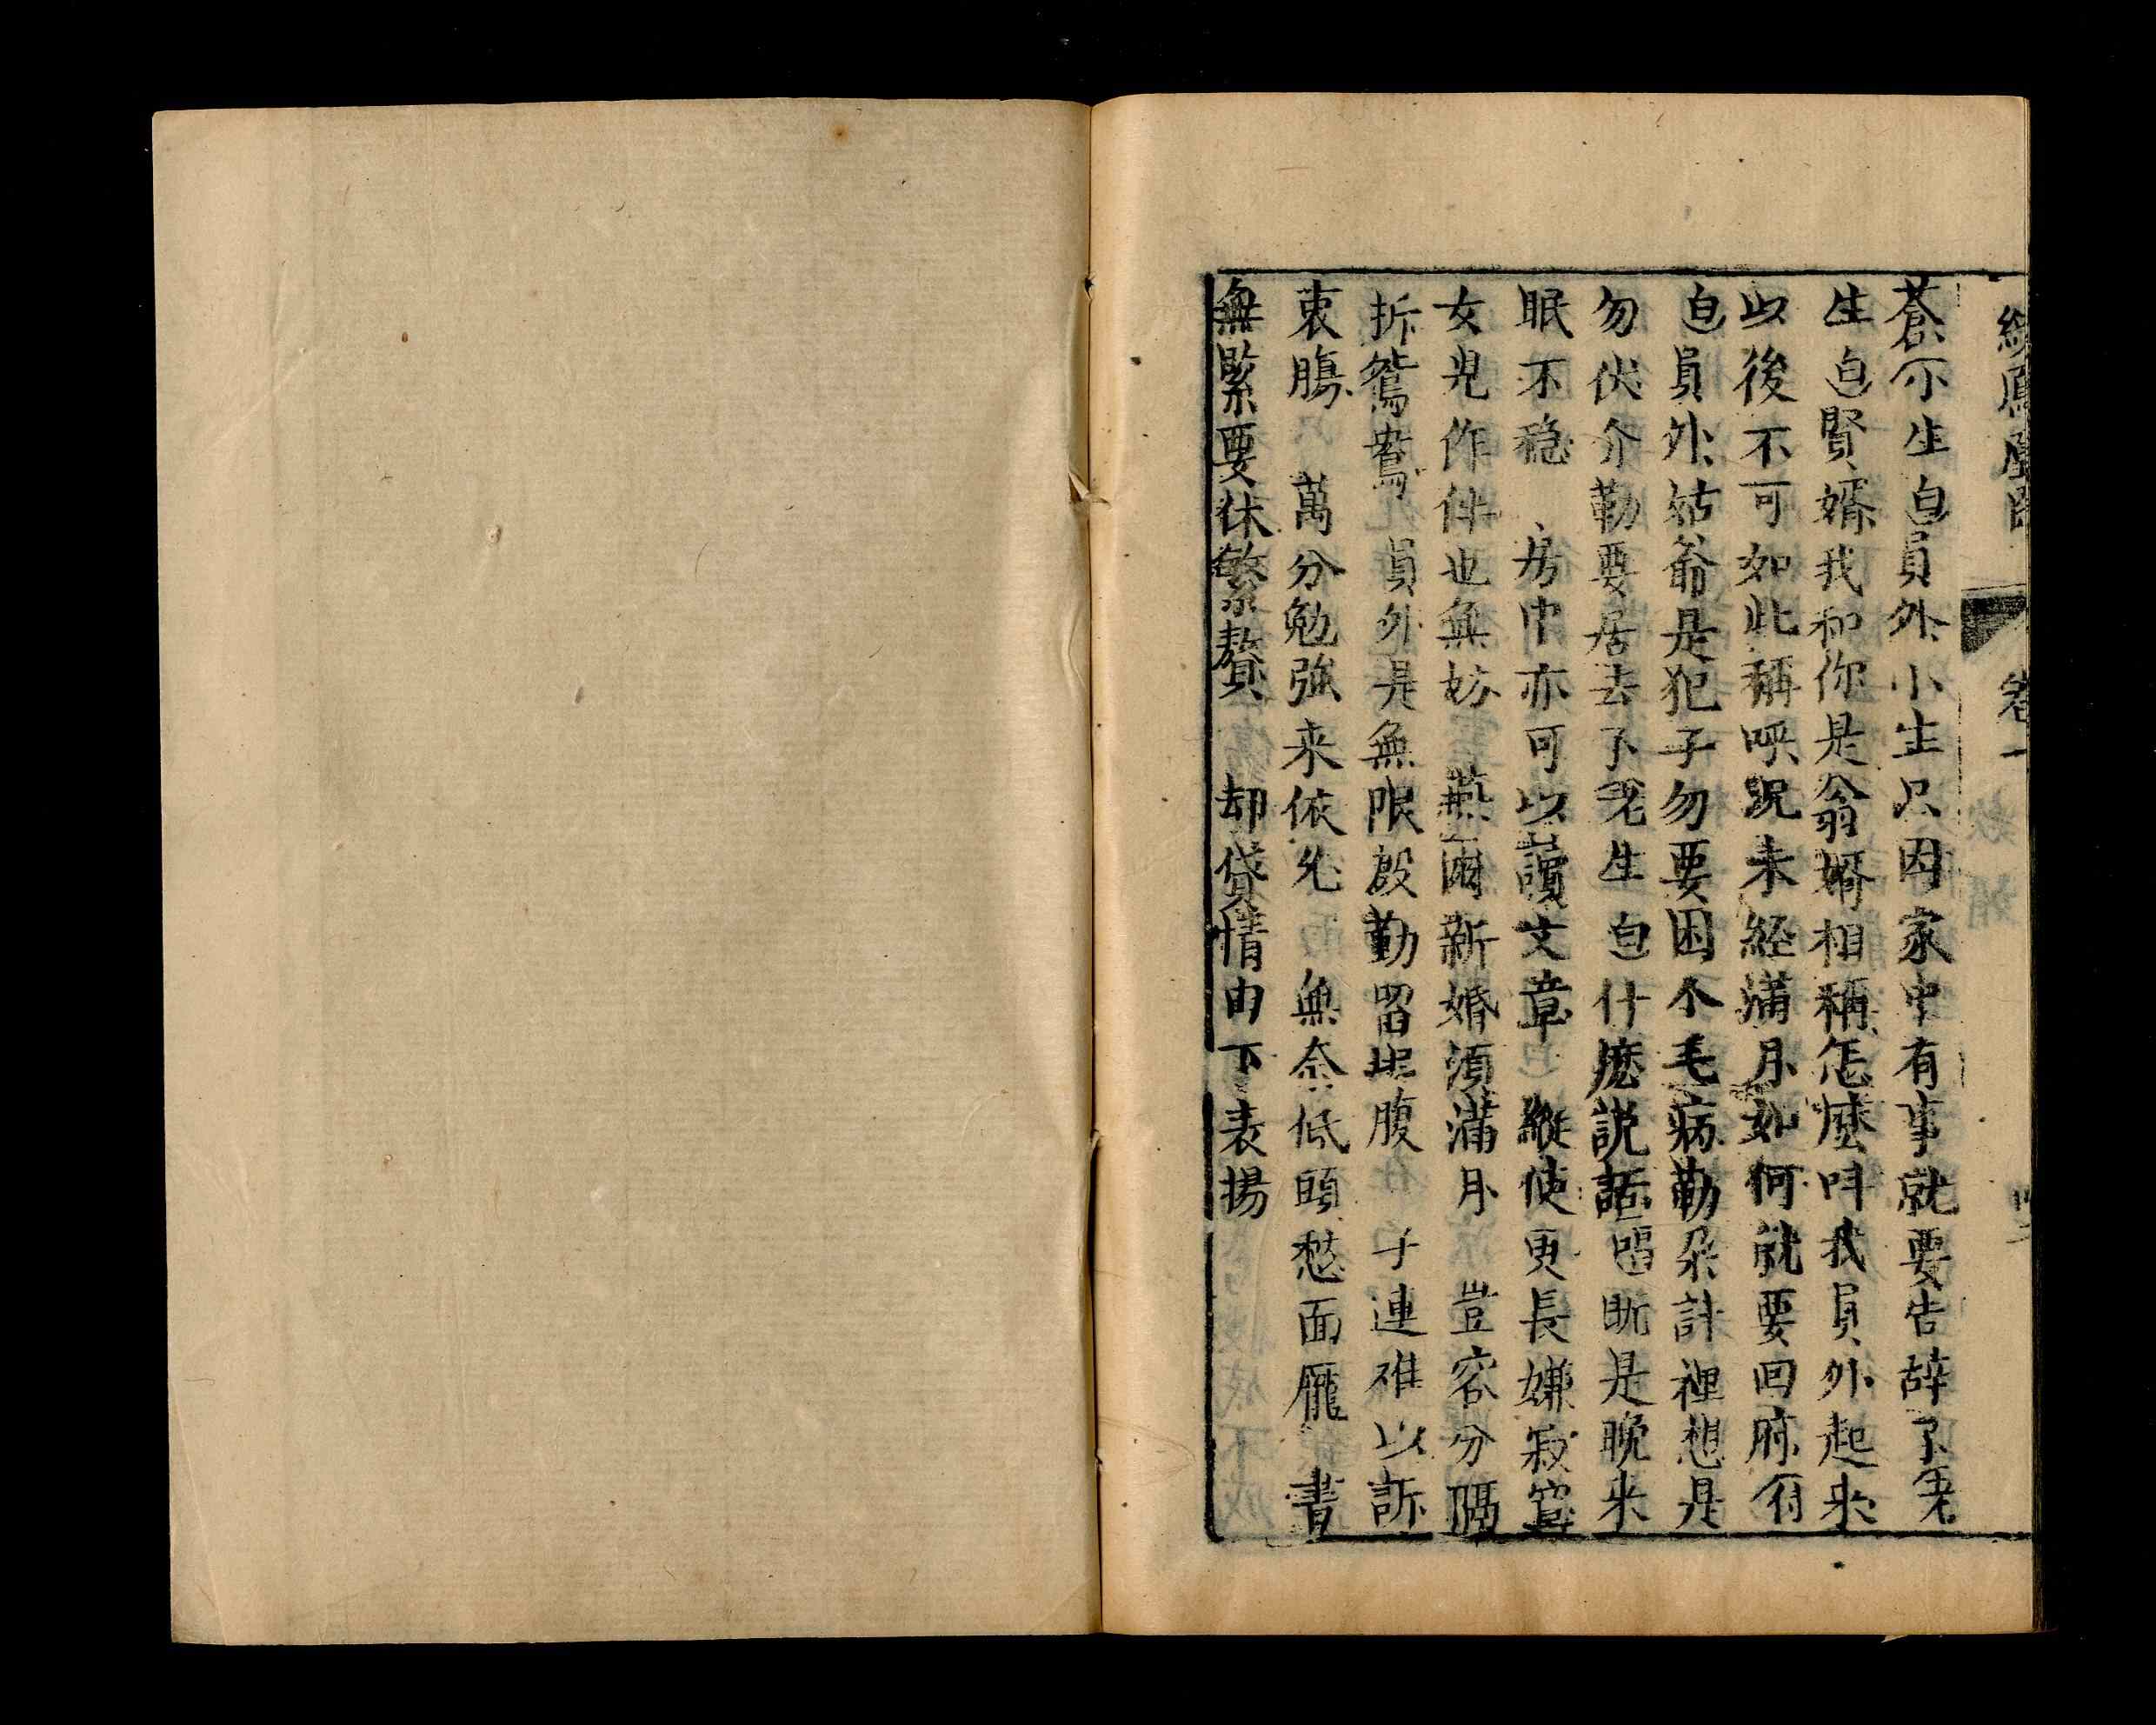 卷一
蒼尒生白員外小生只因家中有事就要告辞了老
生白賢婿我和你是翁婿相稱怎麼呌我員外起來
以後不可如此稱呼況未經滿月如何就要回府有
白員外姑爺是犯子勿要困个毛病勒朶計裡想是
勿伏介勒要居去了老生白什麽説話昭昕是晚来
眠不穏 房中亦可以讀文章 縱使更長嫌寂寞
女児作伴也無妨 燕爾新婚須滿月 豈容分隔
拆鴛鴦 員外是無限殷勤留坦腹 子連难以訴
衷腸 萬分勉強来依允 無奈低頭愁面龎 書
無緊要休繁贅 却貸情由下表揚